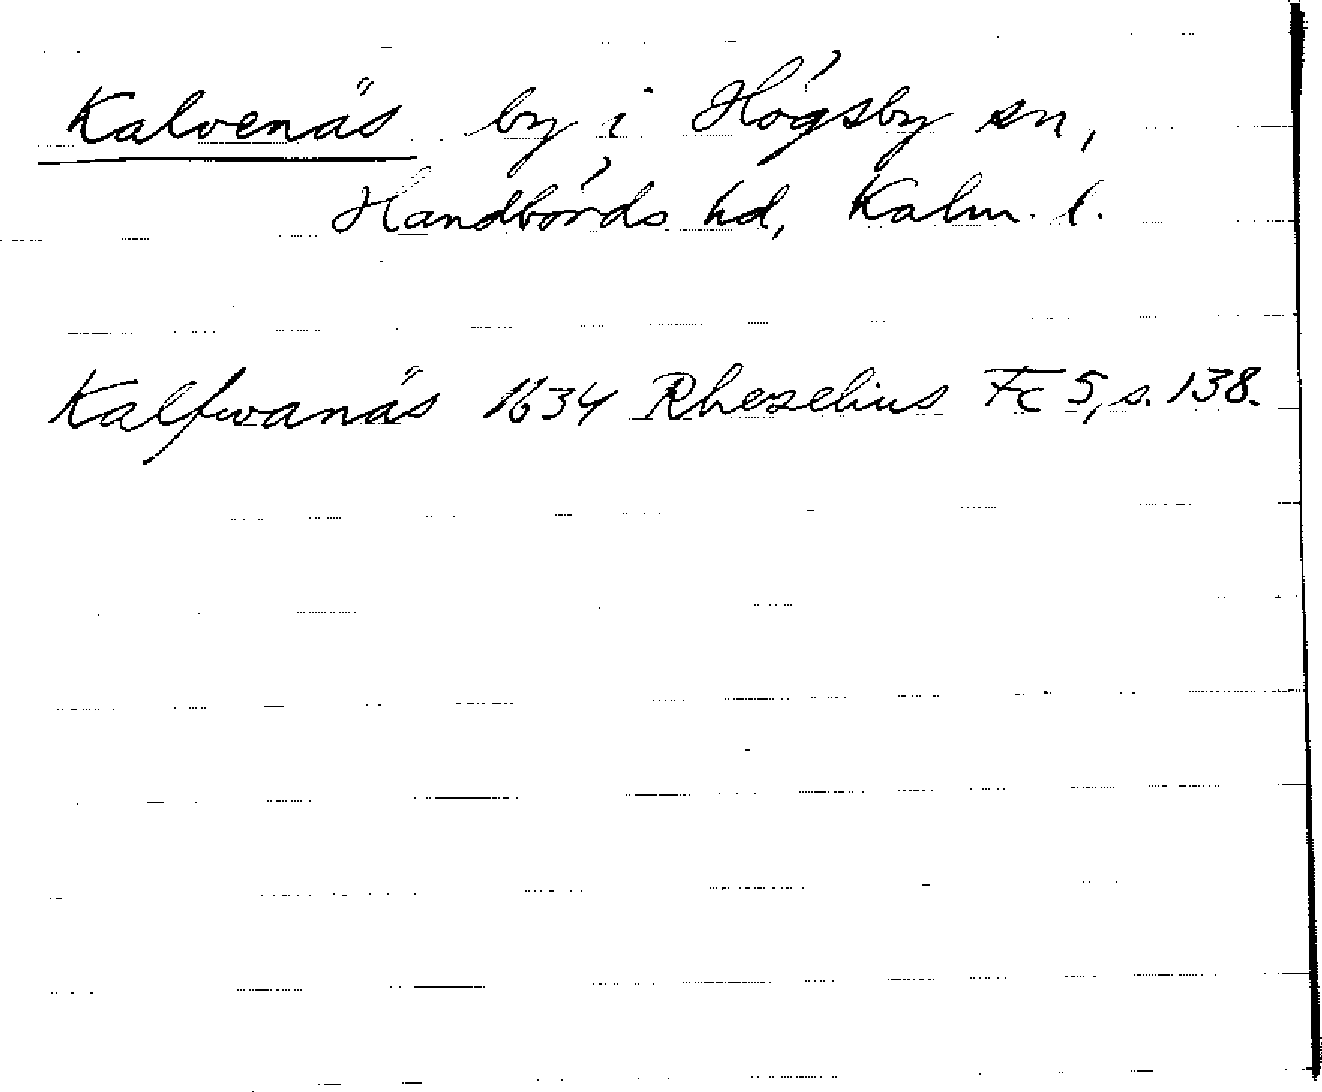 Kalvenäs by i Högsby sn,
Handbörds hd, Kalm. l.
Kalfwanäs 1634 Rhezelius Fc 5, s. 138.